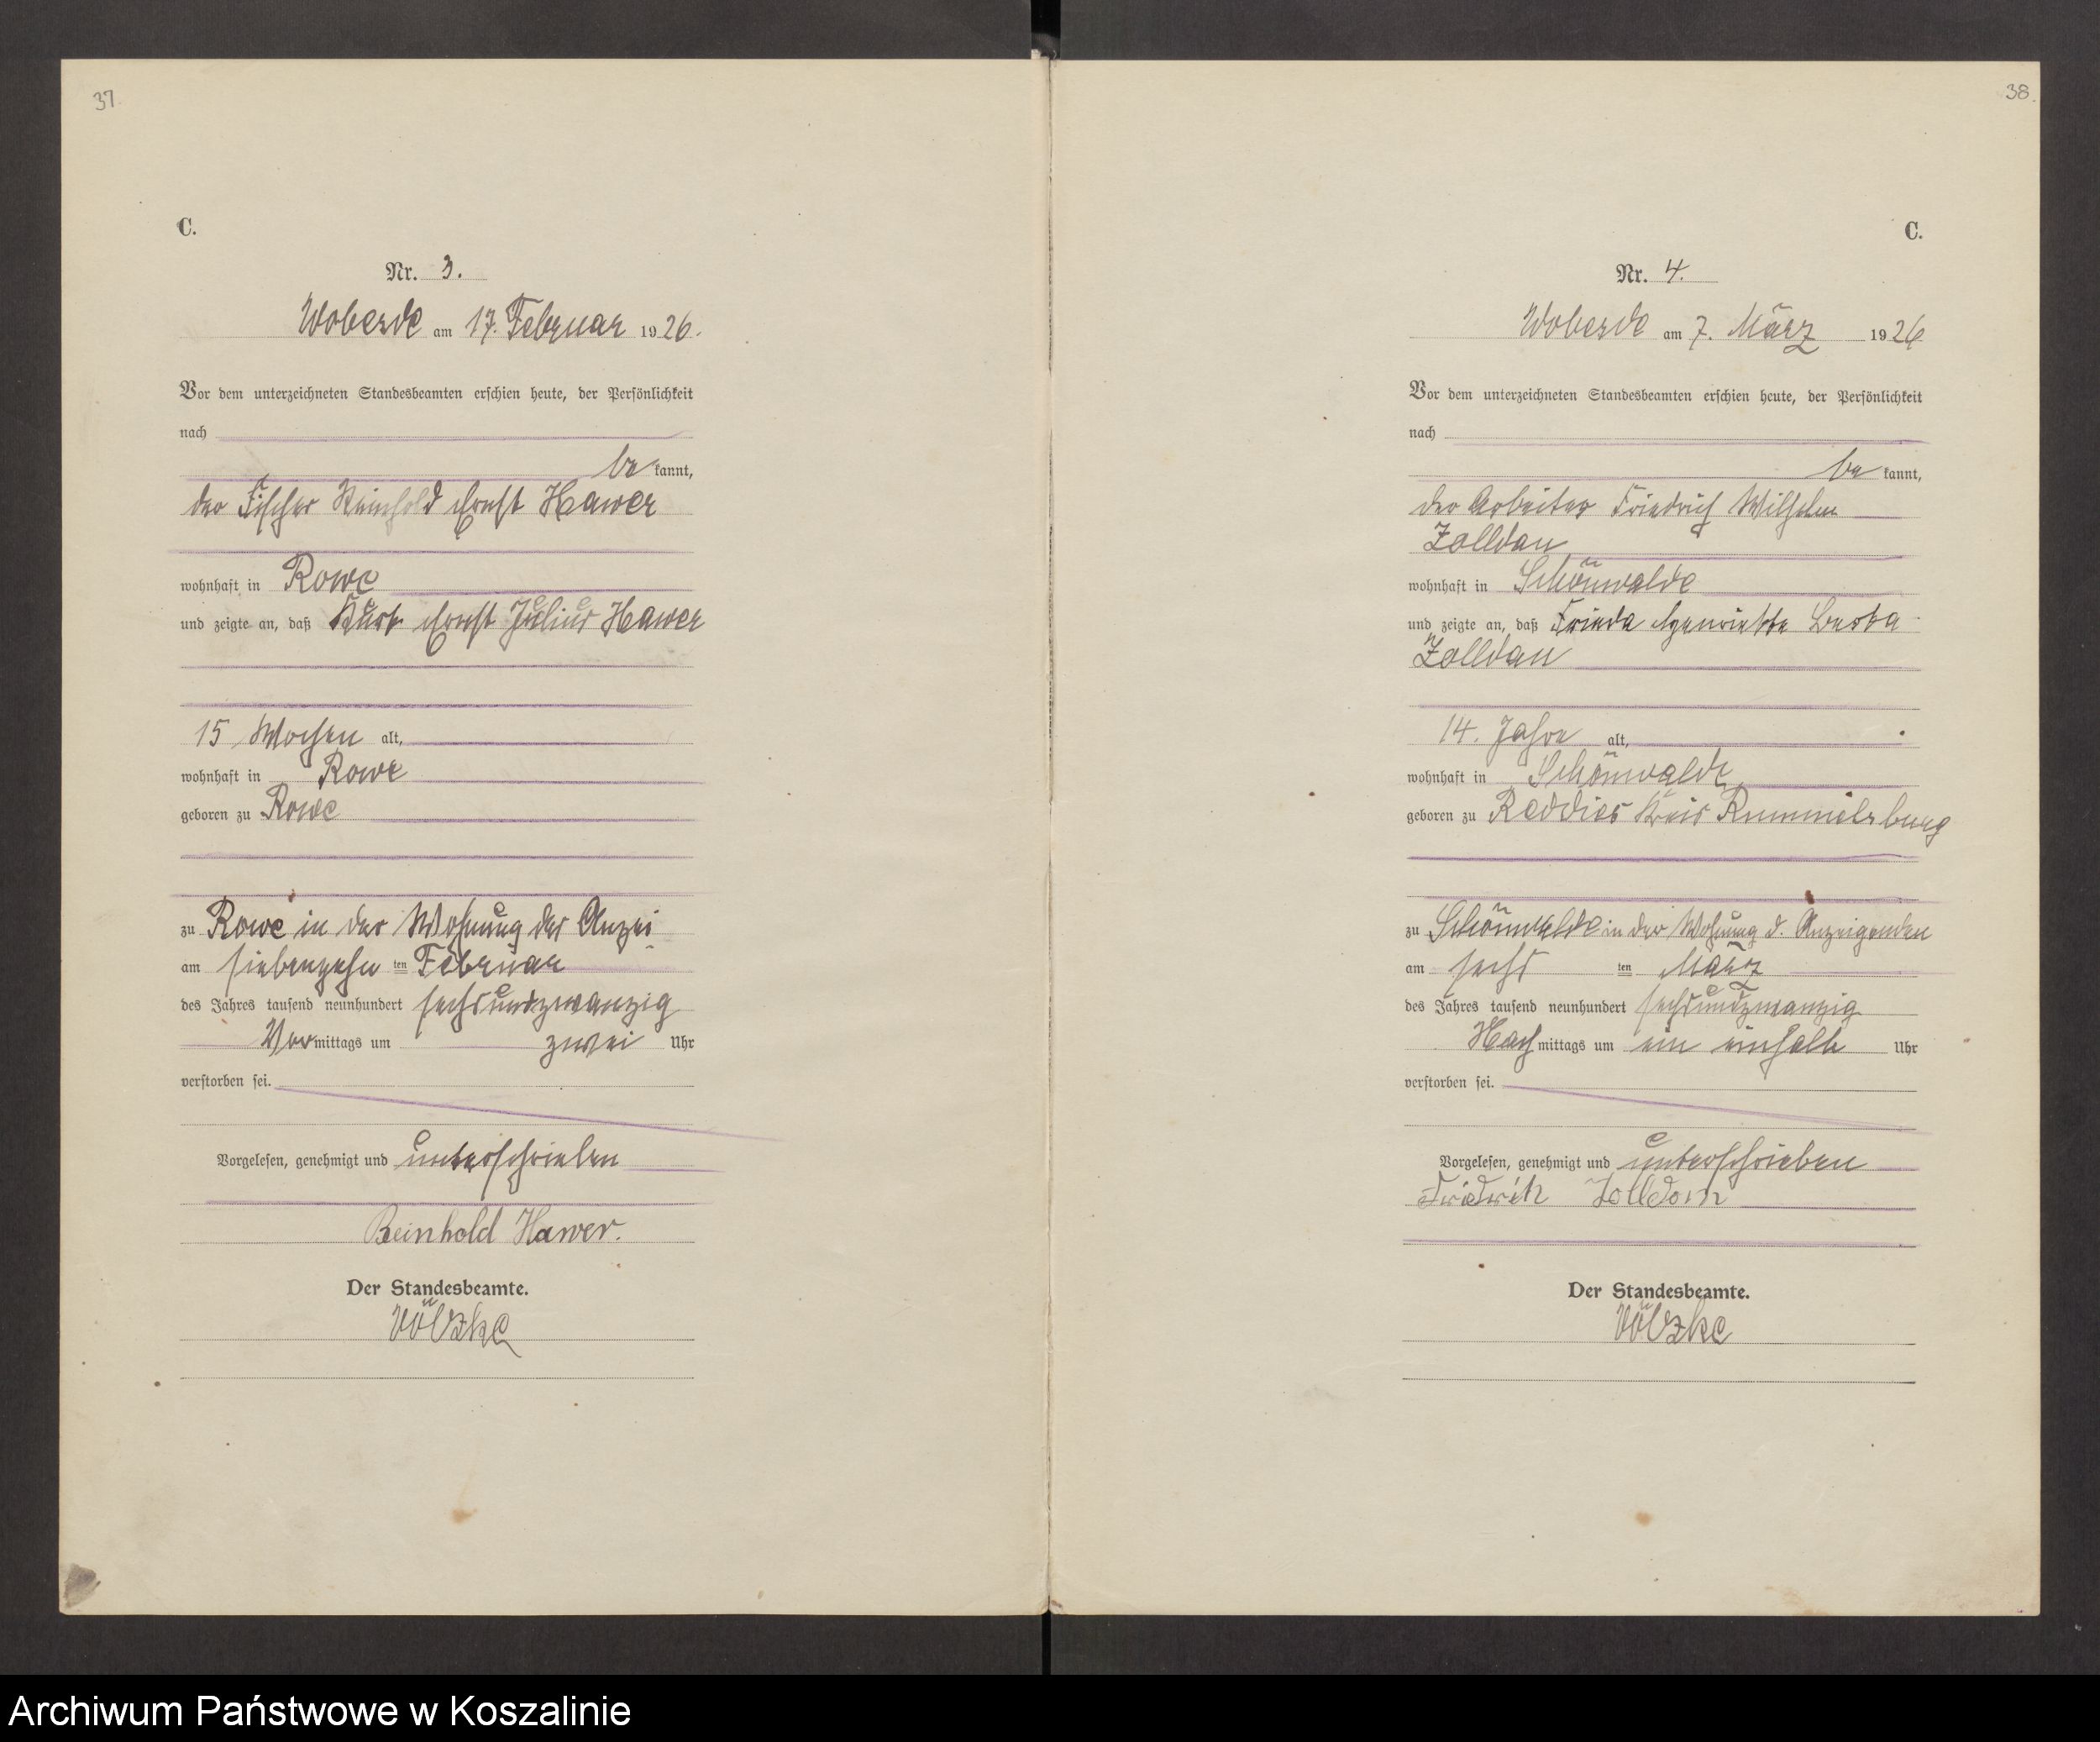 37
C.
Nr. 3.
Wobesde am 17. Februar 1926.
Vor dem unterzeichneten Standesbeamten erschien heute, der Persönlichkeit
nach
be kannt,
der Fischer Reinhold Ernst Hawer
wohnhaft in Rowe
und zeigte an, daß Kurt Ernst Julius Hawer
15 Wochen alt,
wohnhaft in Rowe
geboren zu Rowe
zu Rowe in der Wohnung des Anzei
am siebenzehn ten Februar
des Jahres tausend neunhundert sechsundzwanzig
Vormittags um zwei Uhr
verstorben sei.
Vorgelesen, genehmigt und unterschrieben
Reinhold Hawer.
Der Standesbeamte.
Völzke
38.
C.
Nr. 4.
Wobesde am 7. März 1926
Vor dem unterzeichneten Standesbeamten erschien heute, der Persönlichkeit
nach
be kannt,
der Arbeiter Friedrich Wilhelm
Zolldan
wohnhaft in Schönwalde
und zeigte an, daß Frieda Henriette Berta
Zolldan
14. Jahre alt,
wohnhaft in Schönwalde
geboren zu Reddies Kreis Rummelsburg
zu Schönwalde in der Wohnung d. Anzeigenden
am sechs ten März
des Jahres tausend neunhundert sechsundzwanzig
Nachmittags um ein einhalb Uhr
verstorben sei.
Vorgelesen, genehmigt und unterschrieben
Fridrich Zolldan
Der Standesbeamte.
Völzke
Archiwum Państwowe w Koszalinie